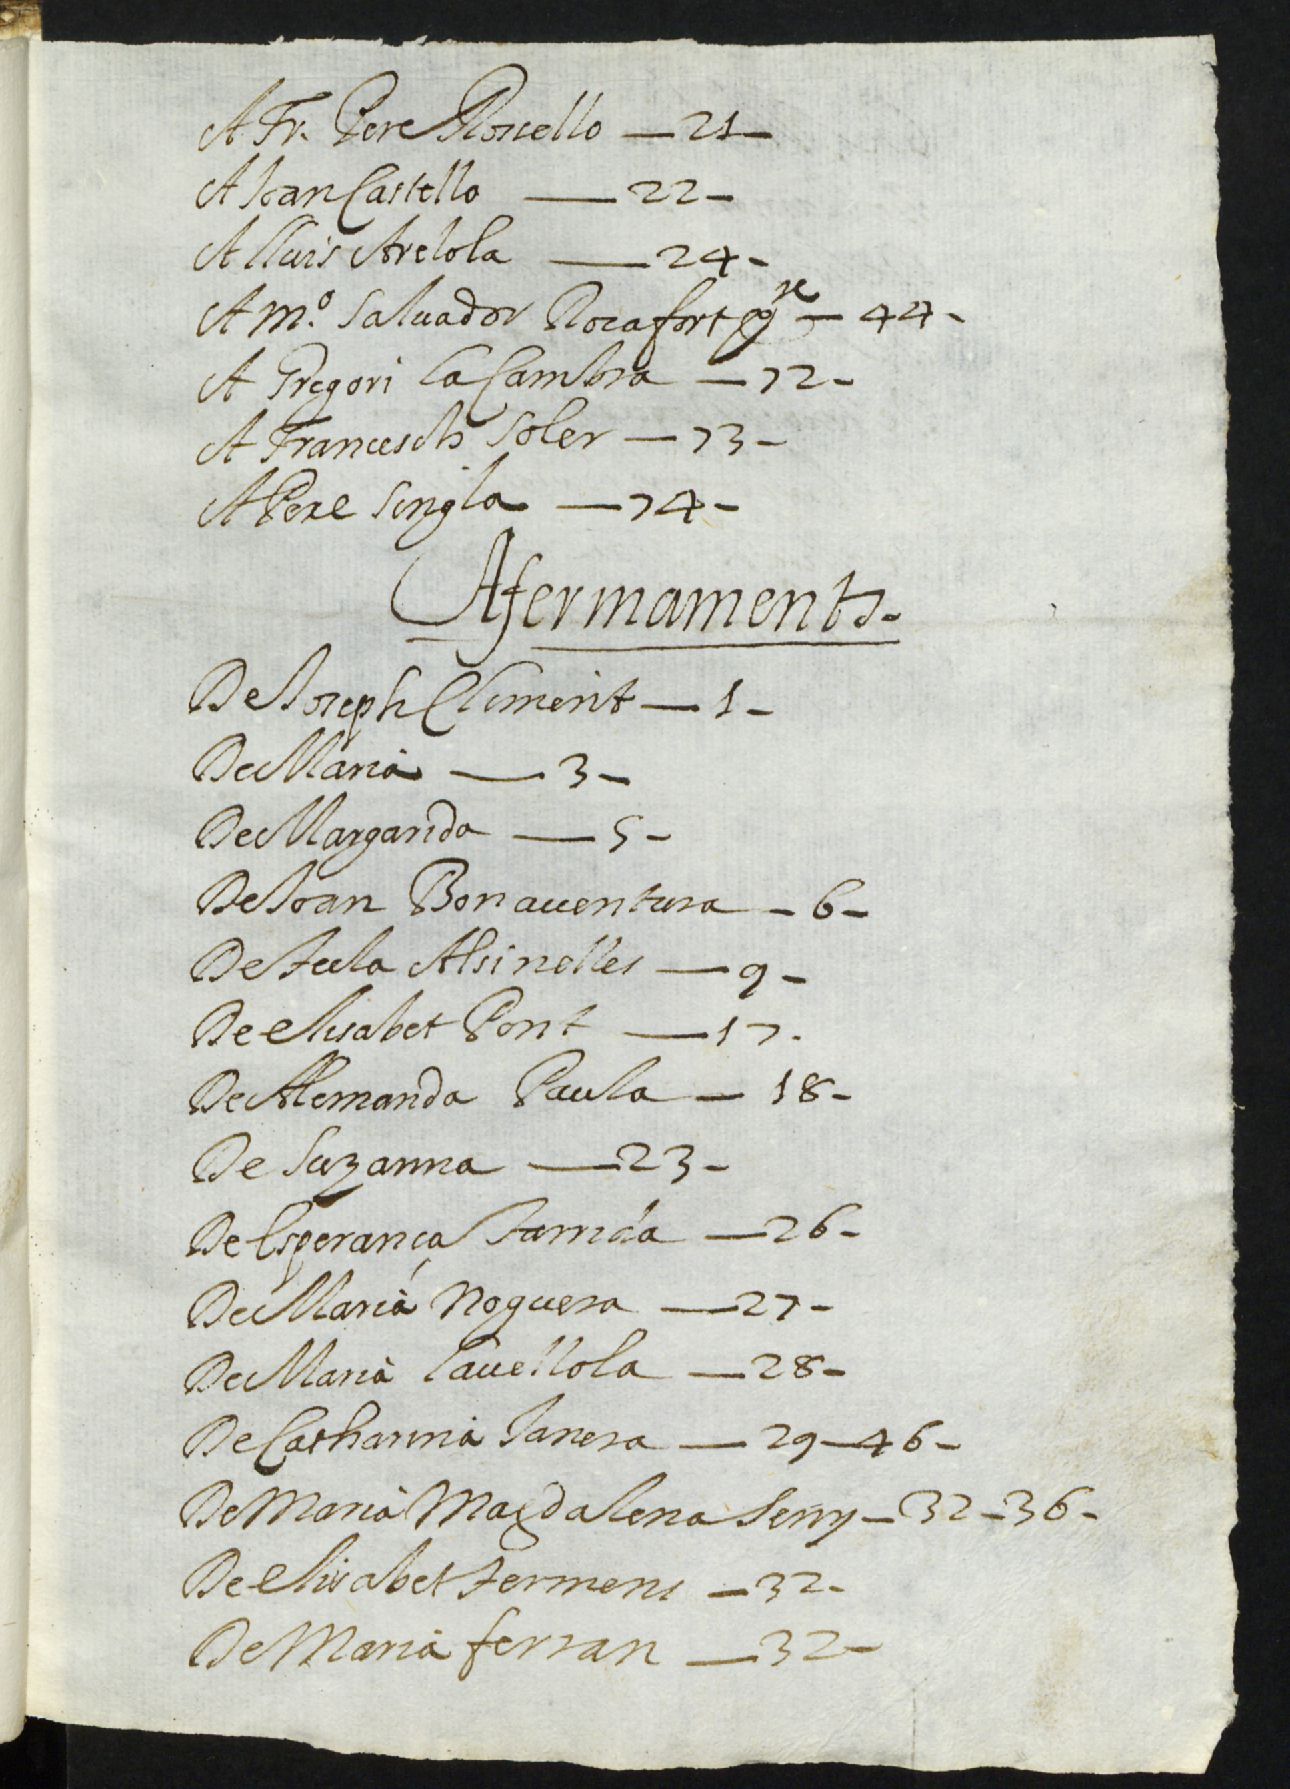 A Fr. Pere Roscello — 21 —
A Joan Castello — 22 -
A Lluis Arelola — 24 -
A M.º Salvador Rocafort — 44 -
A Gregori La Cambra — 72 -
A Francesch Soler — 73 -
A Pere Singla — 74 -
Afermaments.
De Joseph Climent — 1 -
De Maria — 3 -
De Margarida — 5 -
De Joan Bonaventura - 6 -
De Tecla Alsinelles — 9 -
De elisabet Pont — 17 .
De Alemanda Paula — 18 -
De Suzanna — 23 -
De Esperança Tarrida — 26 -
De Maria Noguera — 27 -
De Maria Cavellola — 28 -
De Catharina Janera — 29 — 46 -
De Maria Magdalena Seny — 32 - 36 -
De elisabet Termens — 32 -
De Maria ferran — 32 -